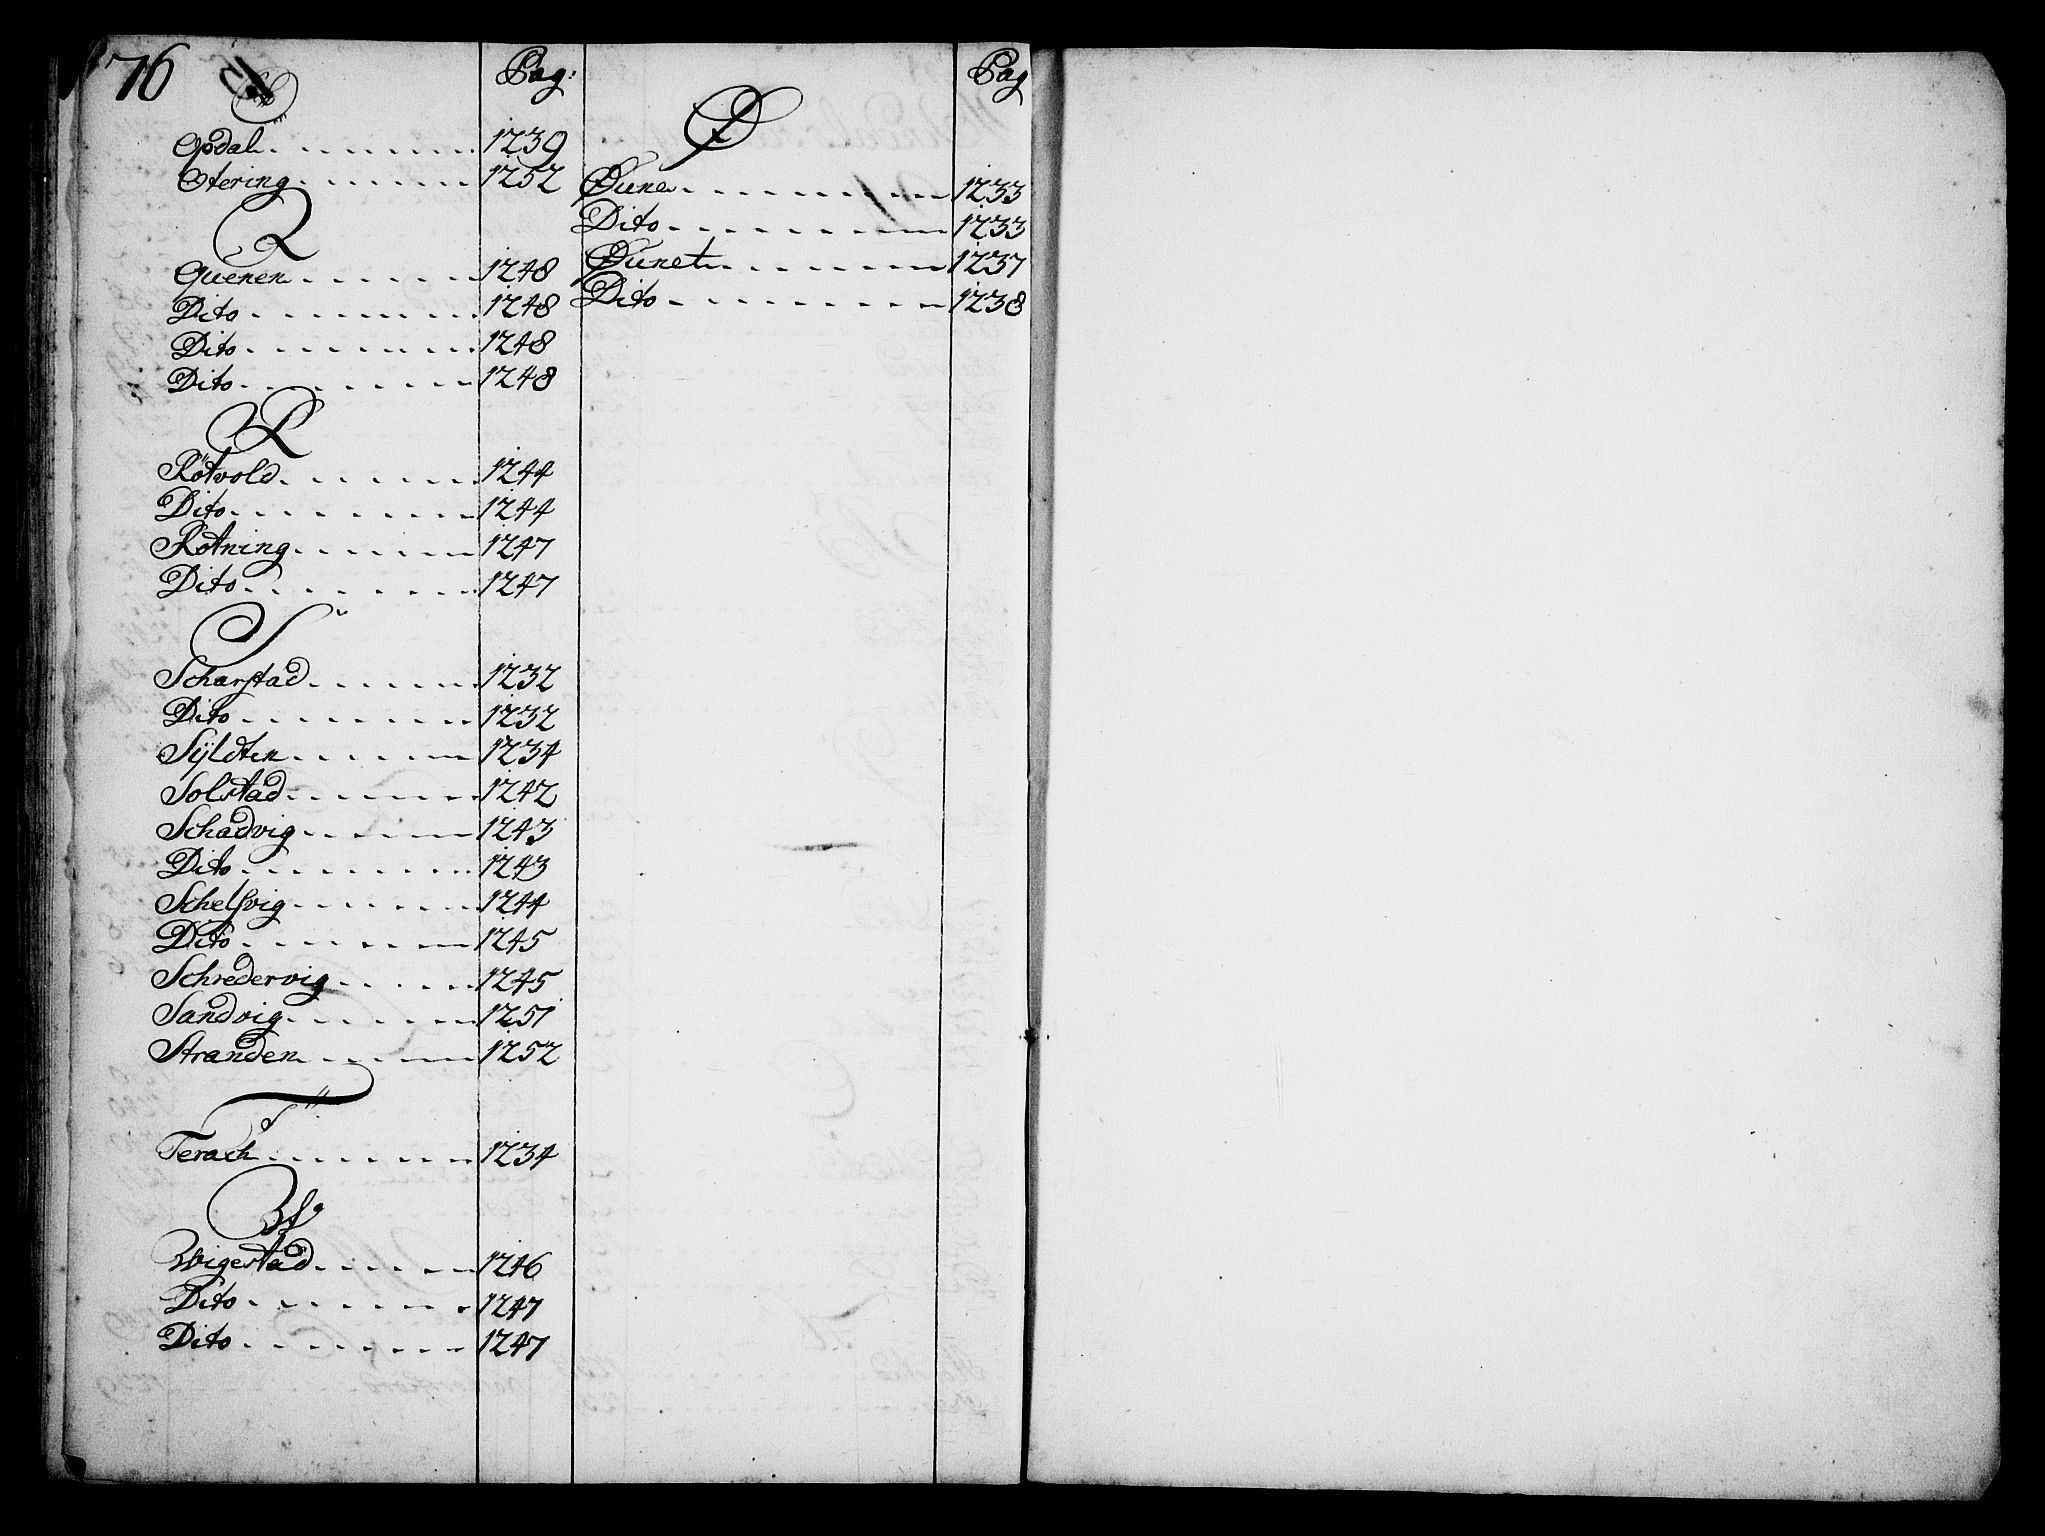 76
Pag:
O
Opdal 1239
Otering 1252
Q
Quenen 1248
Dito 1248
Dito 1248
Dito 1248
R
Rötvold 1244
Dito 1244
Rotning 1247
Dito 1247
S
Scharstad 1232
Dito 1232
Sÿldten 1234
Solstad 1242
Schadvig 1243
Dito 1243
Schelsvig 1244
Dito 1245
Schredervig 1245
Sandvig 1251
Stranden 1252
T
Terach 1234
W
Wigestad 1246
Dito 1247
Dito 1247
Pag
Ø
Øune 1233
Dito 1233
Øunet 1237
Dito 1238